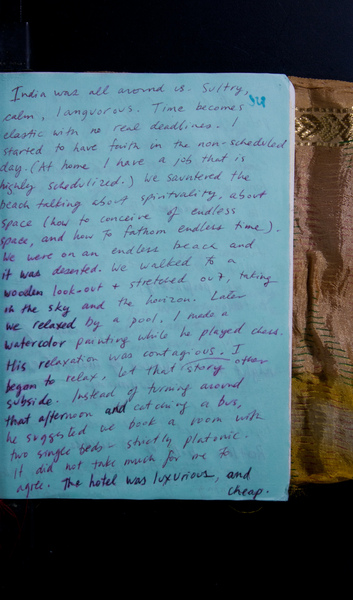 India was all around us. Sultry,
calm, languorous. Time becomes
elastic with no real deadlines. I
started to have faith in the non-scheduled
day. (At home I have a job that is
highly schedulized.) We sauntered the
beach talking about spirituality, about
space (how to conceive of endless
space, and how to fathom endless time).
We were on an endless beach and
it was deserted. We walked to a
wooden look-out + stretched out, taking
in the sky and the horizon. Later
we relaxed by a pool. I made a
watercolor painting while he played chess.
His relaxation was contagious. I
began to relax, let that story other
subside. Instead of turning around
that afternoon and catching a bus,
he suggested we book a room with
two single beds – strictly platonic.
It did not take much for me to
agree. The hotel was luxurious, and
cheap.